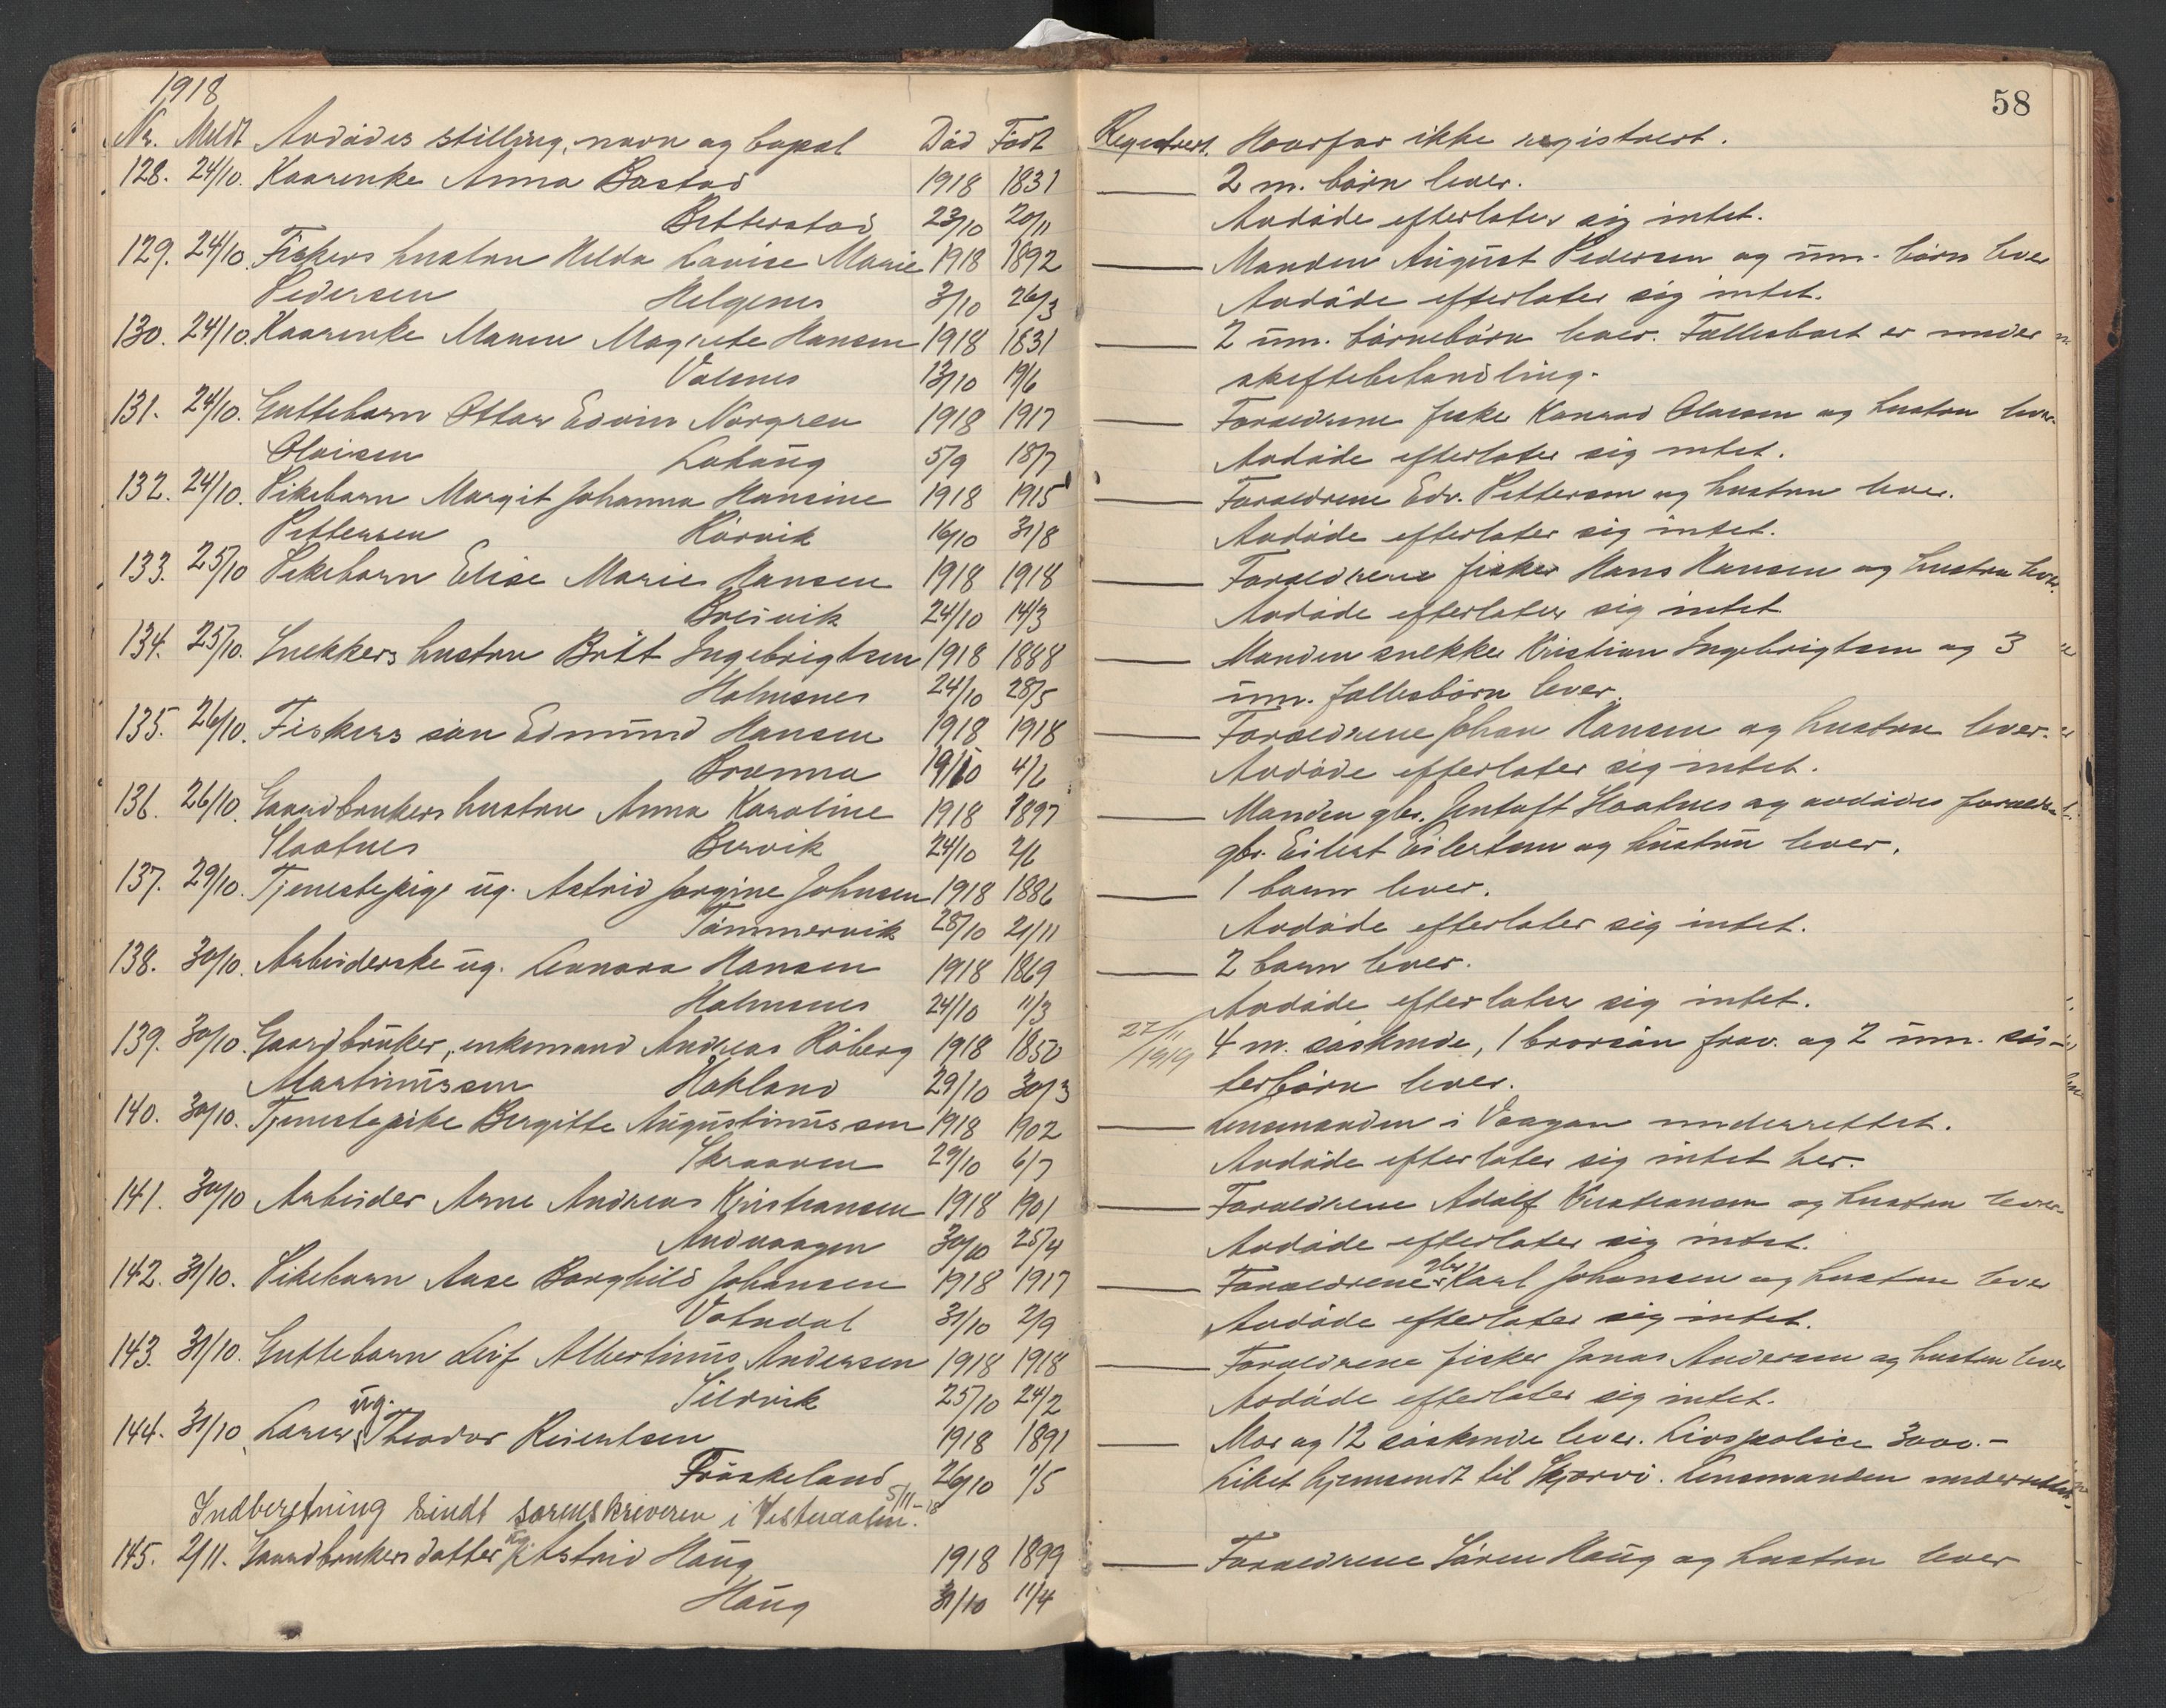 1918
58
Nr. Meldt Avdödes stilling, navn og bopæl Död Födt Registrert. Hvorfor ikke registrert.
128. 24/10. Kaarenke Anna Bastad 1918 1831 — 2 m. börn lever.
Bitterstad 23/10 20/11 Avdöde efterlater sig intet.
129. 24/10. Fiskers hustru Hilda Lovise Marie 1918 1892 — Manden August Pedersen og um. börn lever
Pedersen Melgenes 3/10 26/3 Avdöde efterlater sig intet.
130. 24/10. Kaarenke Maren Magrete Hansen 1918 1831 — 2 um. börnebörn lever. Fællesboet er under
Valsnes 13/10 19/6 skiftebehandling.
131. 24/10. Guttebarn Ottar Edvin Norgren 1918 1917 — Forældrene fisker Konrad Olaisen og hustru lever.
Olaisen Lahaug 5/9 18/7 Avdöde efterlater sig intet.
132. 24/10. Pikebarn Margit Johanna Hansine 1918 1915 — Forældrene Edv. Pettersen og hustru lever.
Pettersen Körvik 16/10 31/8 Avdöde efterlater sig intet.
133. 25/10 Pikebarn Elise Marie Hansen 1918 1918 — Forældrene fisker Hans Hansen og hustru lever.
Breivik 24/10 14/3 Avdöde efterlater sig intet
134. 25/10. Snekkers hustru Britt Ingebrigtsen 1918 1888 — Manden snekker Kristian Ingebrigtsen og 3
Holmsnes 24/10 28/5 um. fællesbörn lever.
135. 26/10. Fiskers sön Edmund Hansen 1918 1918 — Forældrene Johan Hansen og hustru lever.
Brænna 19/10 4/6 Avdöde efterlater sig intet.
136. 26/10. Gaardbrukers hustru Anna Karoline 1918 1897 — Manden gbr. Jentoft Slaatnes og avdödes forældre
Slaatnes Bervik 24/10 2/6 gbr. Eilert Eilertsen og hustru lever.
137. 29/10. Tjenestepige ug. Astrid Jorgine Johnsen 1918 1886 — 1 barn lever.
Tömmervik 28/10 21/11 Avdöde efterlater sig intet.
138. 30/10. Arbeiderske ug. Leonora Hansen 1918 1869 — 2 barn lever.
Holmsnes 24/10 11/3 Avdöde efterlater sig intet.
139. 30/10. Gaardbruker, enkemand Andreas Röberg 1918 1850 27/11 1919 4 m. söskende, 1 brorsön frav. og 2 um. sös-
Martinussen Hokland 29/10 30/3 terbörn lever.
140. 30/10. Tjenestepike Bergitte Augustinussen 1918 1902 — Lensmanden i Vaagan underrettet.
Skraaven 29/10 6/7 Avdöde efterlater sig intet her.
141. 30/10 Arbeider Arne Andreas Kristiansen 1918 1901 — Forældrene Adolf Kristiansen og hustru lever.
Andvaagen 30/10 25/4 Avdöde efterlater sig intet.
142. 31/10. Pikebarn Aase Borghild Johansen 1918 1917 — Forældrene gbr. Karl Johansen og hustru lever
Vatndal 31/10 2/9 Avdöde efterlater sig intet.
143. 31/10. Guttebarn Leif Albertinus Andersen 1918 1918 — Forældrene fisker Jonas Andersen og hustru lever
Sildvik 25/10 24/2 Avdöde efterlater sig intet.
144. 31/10. Lærer ug. Theodor Reiertsen 1918 1891 — Mor og 12 söskende lever. Livspolice 3000.-
Fröskeland 26/10 1/5 Liket hjemsendt til Skjærvö. Lensmanden underrettet.
Indberetning sendt sorenskriveren i Vesteraalen 5/11-18
145. 2/11. Gaardbrukers datter ug. Astrid Haug 1918 1899 — Forældrene Sören Haug og hustru lever
Haug 31/10 11/4